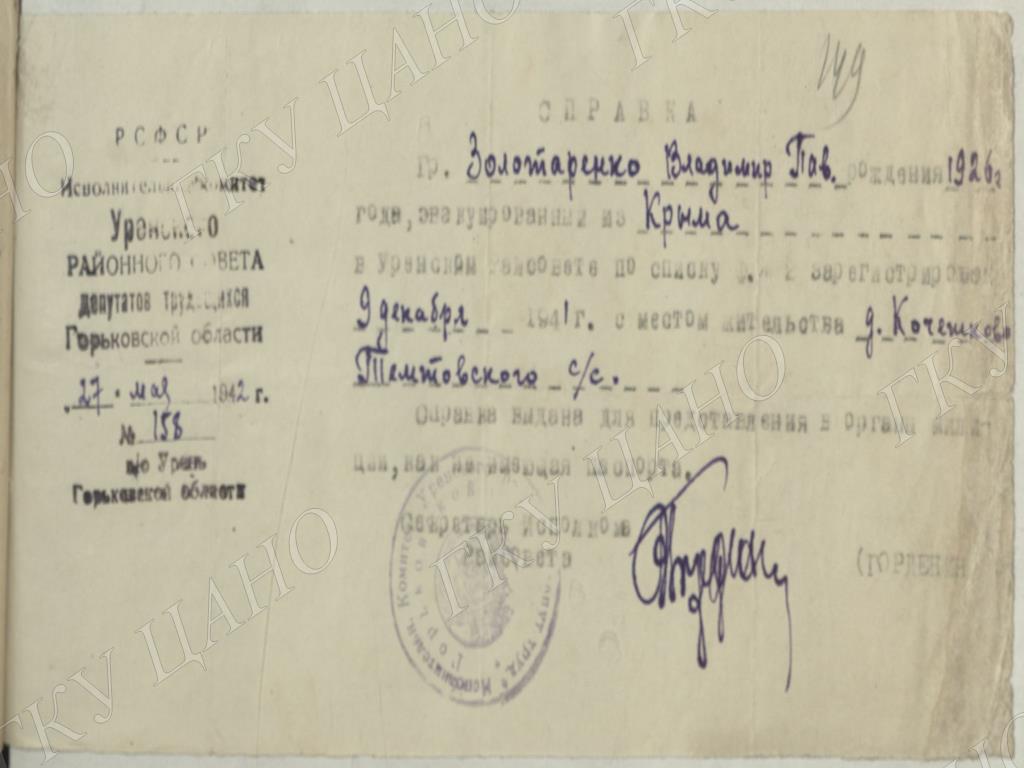 149
РСФСР
Исполнительный комитет
Уренского
РАЙОННОГО СОВЕТА
депутатов трудящихся
Горьковской области
27 мая 1942 г.
№ 158
п/о Урень
Горьковской области
СПРАВКА
Гр. Золотаренко Владимир Пав. рождения 1926 г
года, эвакуированный из Крыма
в Уренском райсовете по списку зарегистрирован
9 декабря 1941 г. с местом жительства д. Кочешково
Темтовского с/с.
Справка выдана для представления в органы мили-
ции, как не имеющая паспорта.
Секретарь Исполкома
Райсовета
(ГОРДЕНИН
ГКУ ЦАНО